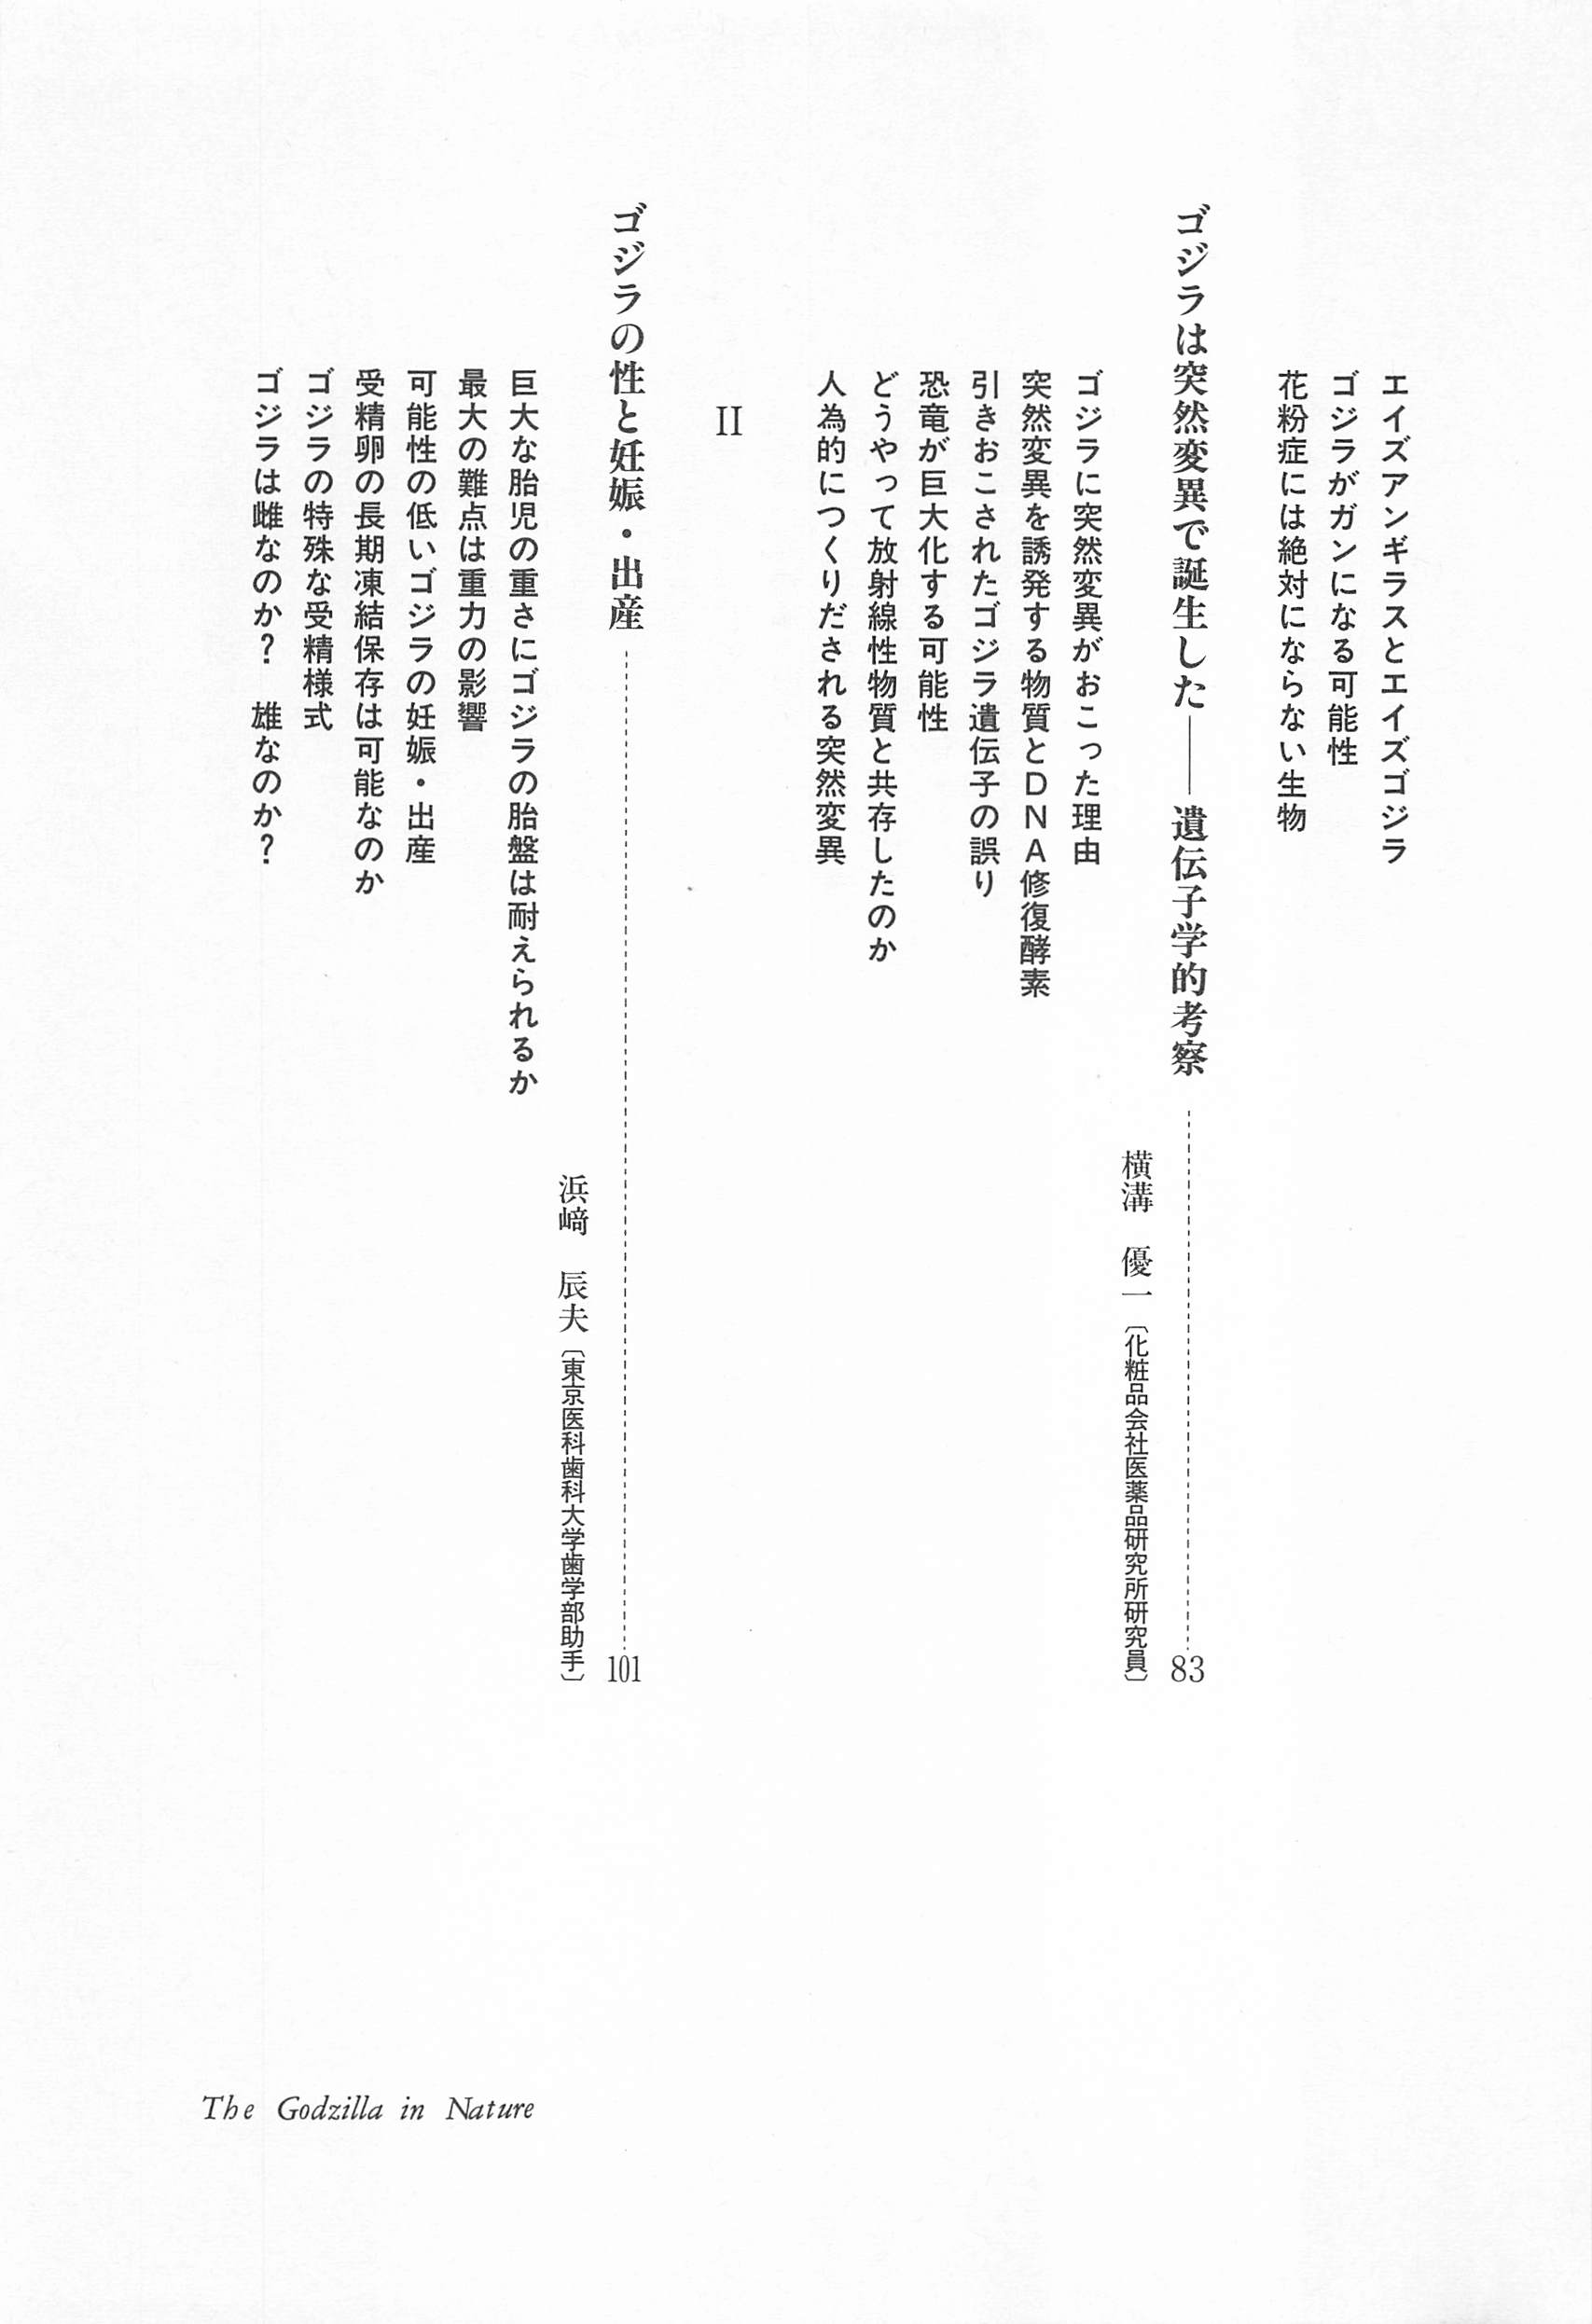 エイズアンギラスとエイズゴジラ
ゴジラがガンになる可能性
花粉症には絶対にならない生物
ゴジラは突然変異で誕生した――遺伝子学的考察 83
横溝　優一〔化粧品会社医薬品研究所研究員〕
ゴジラに突然変異がおこった理由
突然変異を誘発する物質とDNA修復酵素
引きおこされたゴジラ遺伝子の誤り
恐竜が巨大化する可能性
どうやって放射線性物質と共存したのか
人為的につくりだされる突然変異
II
ゴジラの性と妊娠・出産 101
浜﨑　辰夫〔東京医科歯科大学歯学部助手〕
巨大な胎児の重さにゴジラの胎盤は耐えられるか
最大の難点は重力の影響
可能性の低いゴジラの妊娠・出産
受精卵の長期凍結保存は可能なのか
ゴジラの特殊な受精様式
ゴジラは雌なのか？　雄なのか？
The Godzilla in Nature